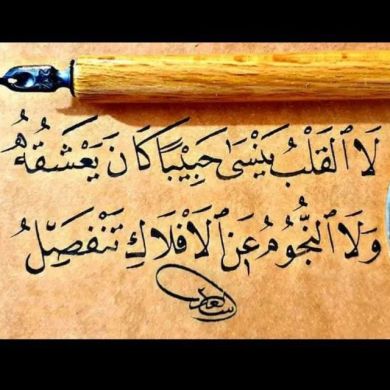 لَا ٱلقَلْبُ يَنْسَىٰ حَبِيْبًا كَانَ يَعْشَقُهُ
وَلَا ٱلنُّجُوْمُ عَنِ ٱلأَفْلَاكِ تَنْفَصِلُ